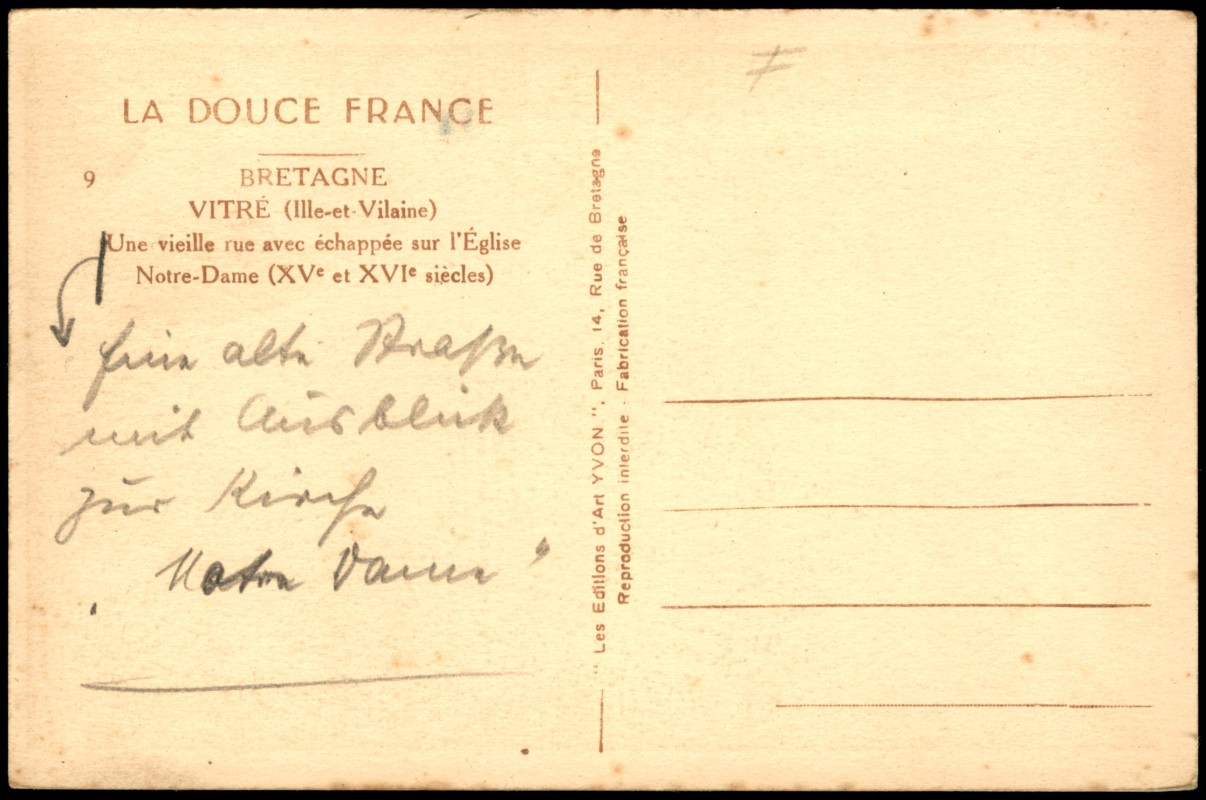 LA DOUCE FRANCE
9
BRETAGNE
VITRÉ (Ille-et-Vilaine)
Une vieille rue avec échappée sur l'Église
Notre-Dame (XVe et XVIe siècles)
Eine alte Straße
mit Ausblick
zur Kirche
„Notre Dame“
" Les Editions d'Art YVON ", Paris, 14, Rue de Bretagne
Reproduction interdite - Fabrication française